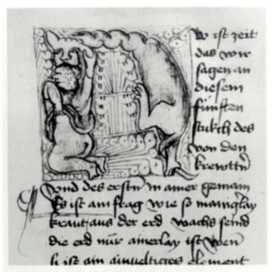 Es ist zeit
das wir
sagen an
diesem
fünften
stukch des
von den
krewttn
vnd des erstn in ainer gemain
Es ist ain frag wie so manigslay
kraut aus der erd wachs seind
die erd nur ainerlay ist wen
si ist ain ainueltigs element